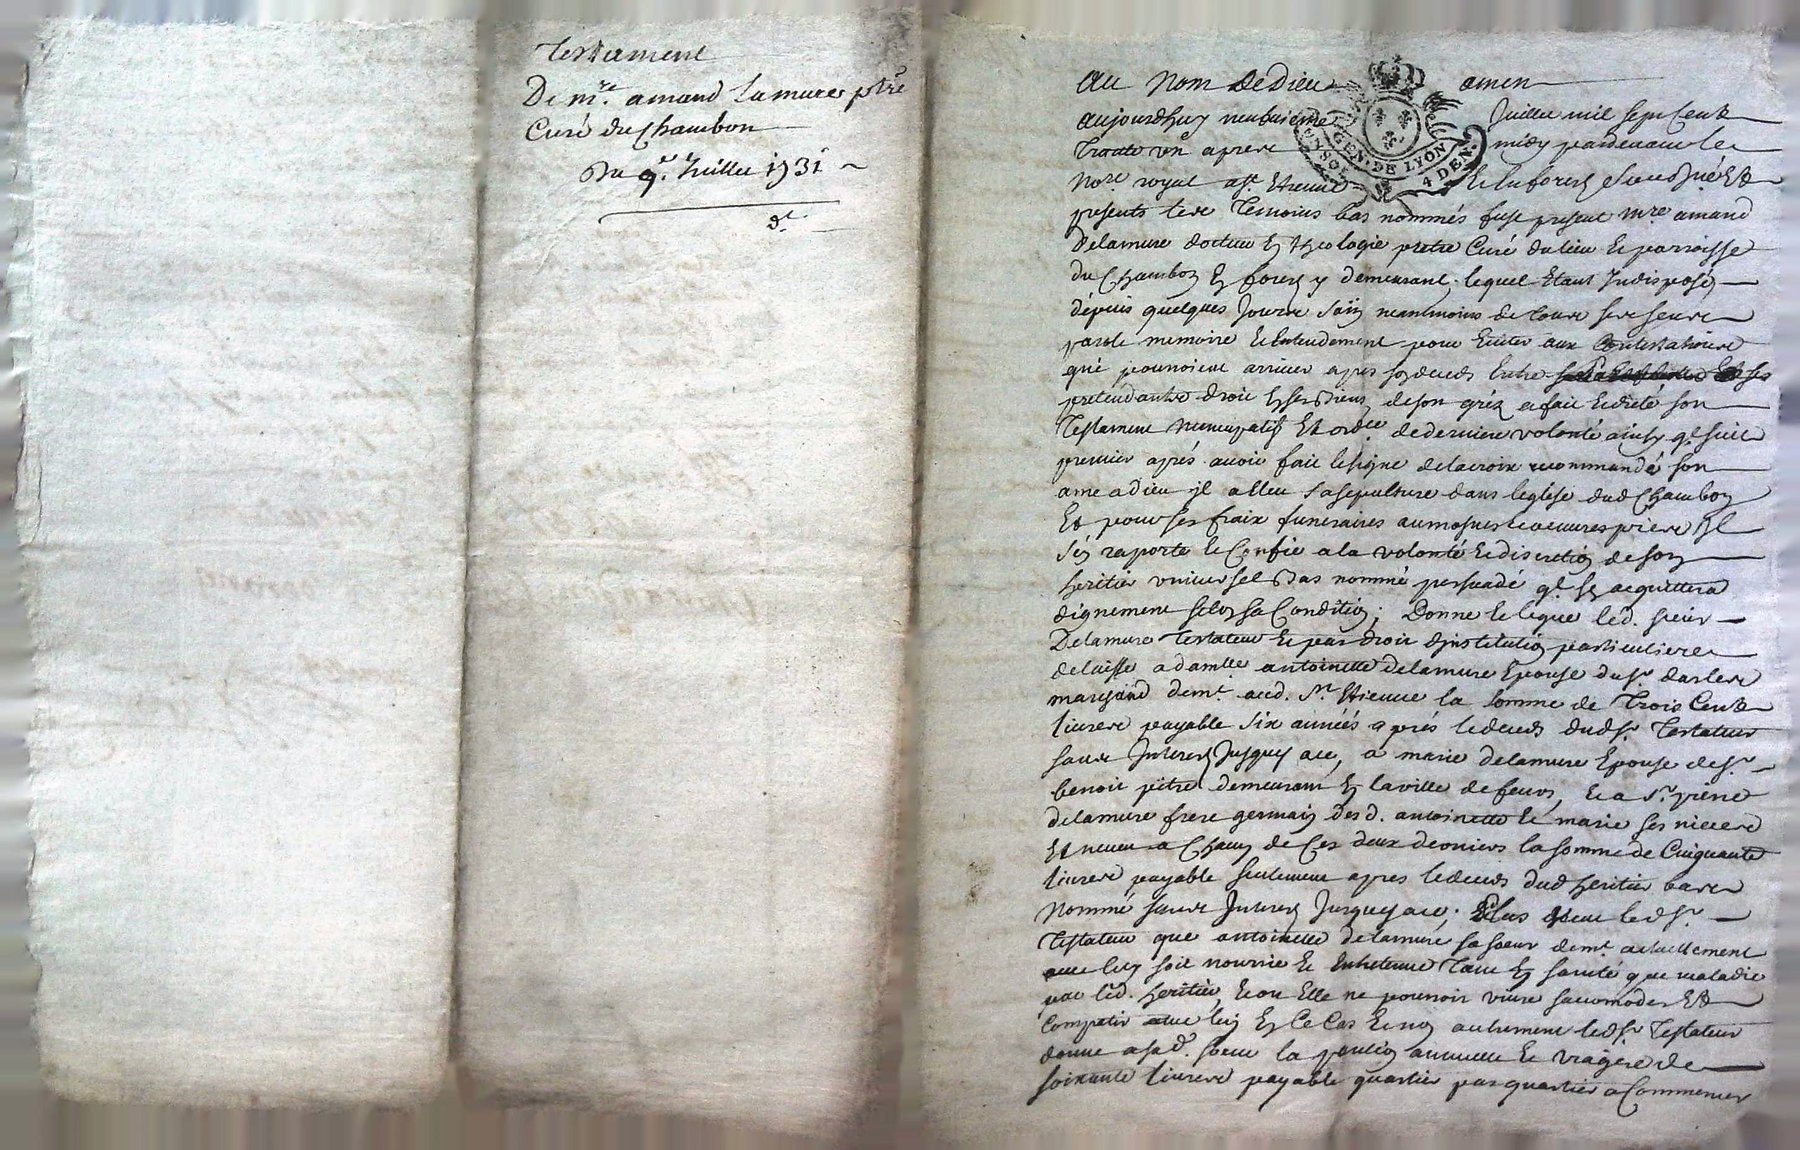 Testament
De mre. amand Lamure ptre
Curé du Chambon
Du 9e. Juillet 1731
dt.
Au Nom de Dieu amen
aujourdhuy neufvieme Juillet mil sept Cent
Trente un apres midy pardevant le
Nore. royal a St. Etienne et la forest Soussigné Et
presents les Temoins bas nommés fust present mre amand
Delamure docteur En theologie pretre Curé du lieu et parroisse
du Chambon En forest y demeurant, lequel Etant Indisposé
dépuis quelques Jours Sain neantmoins de tous ses sens
parole memoire et Entendement pour Eviter aux Contestations
qui pouroient arriver apres son deces Entre ses
pretendants droit En ses biens, de son gréz a fait et dicté son
Testament Nuncupatif Et ordce. de derniere volonté ainsy q. suit
premier aprés avoir fait le signe de la croix recommandé son
ame a dieu il a Eleu sa sepulture dans leglise dud Chambon
Et pour ses fraix funeraires aumosnes et oeuvres pies Il
sén raporte et Confie a la volonté et discretion de son
heritier universel bas nommé persuadé q. sen acquittera
dignement selon sa Condition; Donne et legue led. sieur
Delamure Testateur et par droit dinstitution particuliere
delaisse a damlle antoinette Delamure Epouse du sr. darles
marchand demt. aud. St. Etienne la somme de Trois Cent
livres payable six années aprés le deces dud sr. Testateur
sans Interest Jusques a ce, a marie delamure Epouse de sr.
benoit pitre demeurant En la ville de feurs, et a sr. piere
delamure frere germain desd. antoinette et marie ses nieces
Et neveu a Chacun de Ces deux derniers la somme de Cinquante
livres payable seulement apres le deces dud heritier bas
Nommé sans Interest Jusques a ce; Plus veut led sr.
Testateur que antoinette delamure sa soeur demt. actuellement
avec luy soit nourrie et Entretenue Tant En santé que maladie
par led. heritier, et ou Elle ne pourroit vivre sacomoder Et
Compatir avec luy En Ce Cas et non autrement led sr. Testateur
donne a sad. soeur la pention annuelle et viagere de
soixante livres payable quartier par quartier a Commencer
GEN. DE LYON
4 DEN.